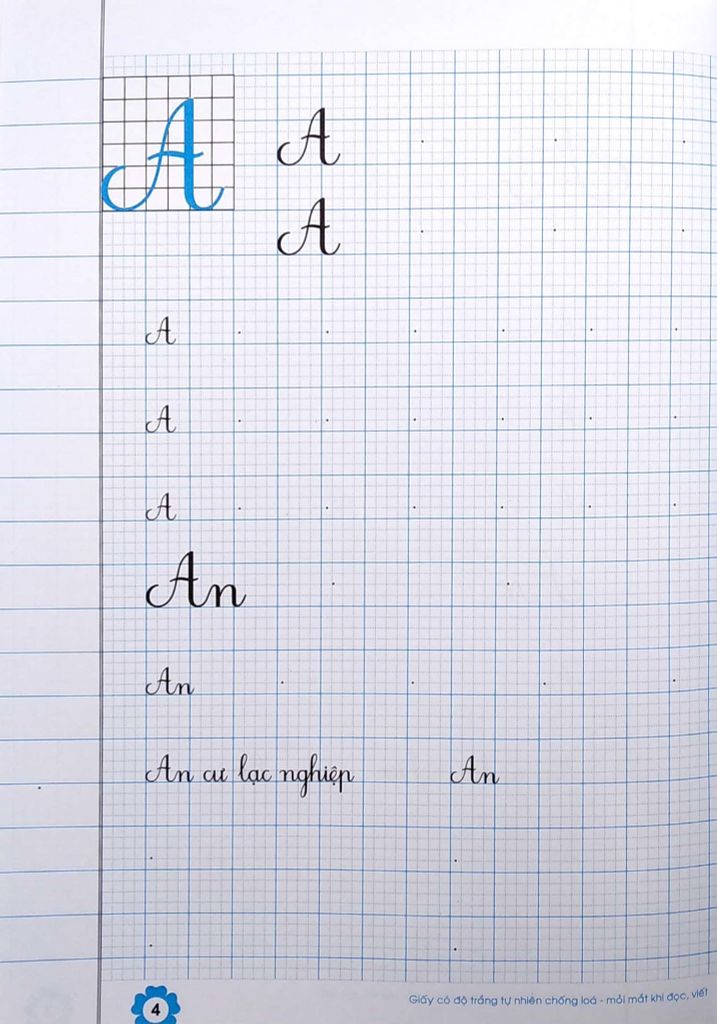 A A
A
A
A
A
An
An
An cư lạc nghiệp An
4
Giấy có độ trắng tự nhiên chống loá - mỏi mắt khi đọc, viết